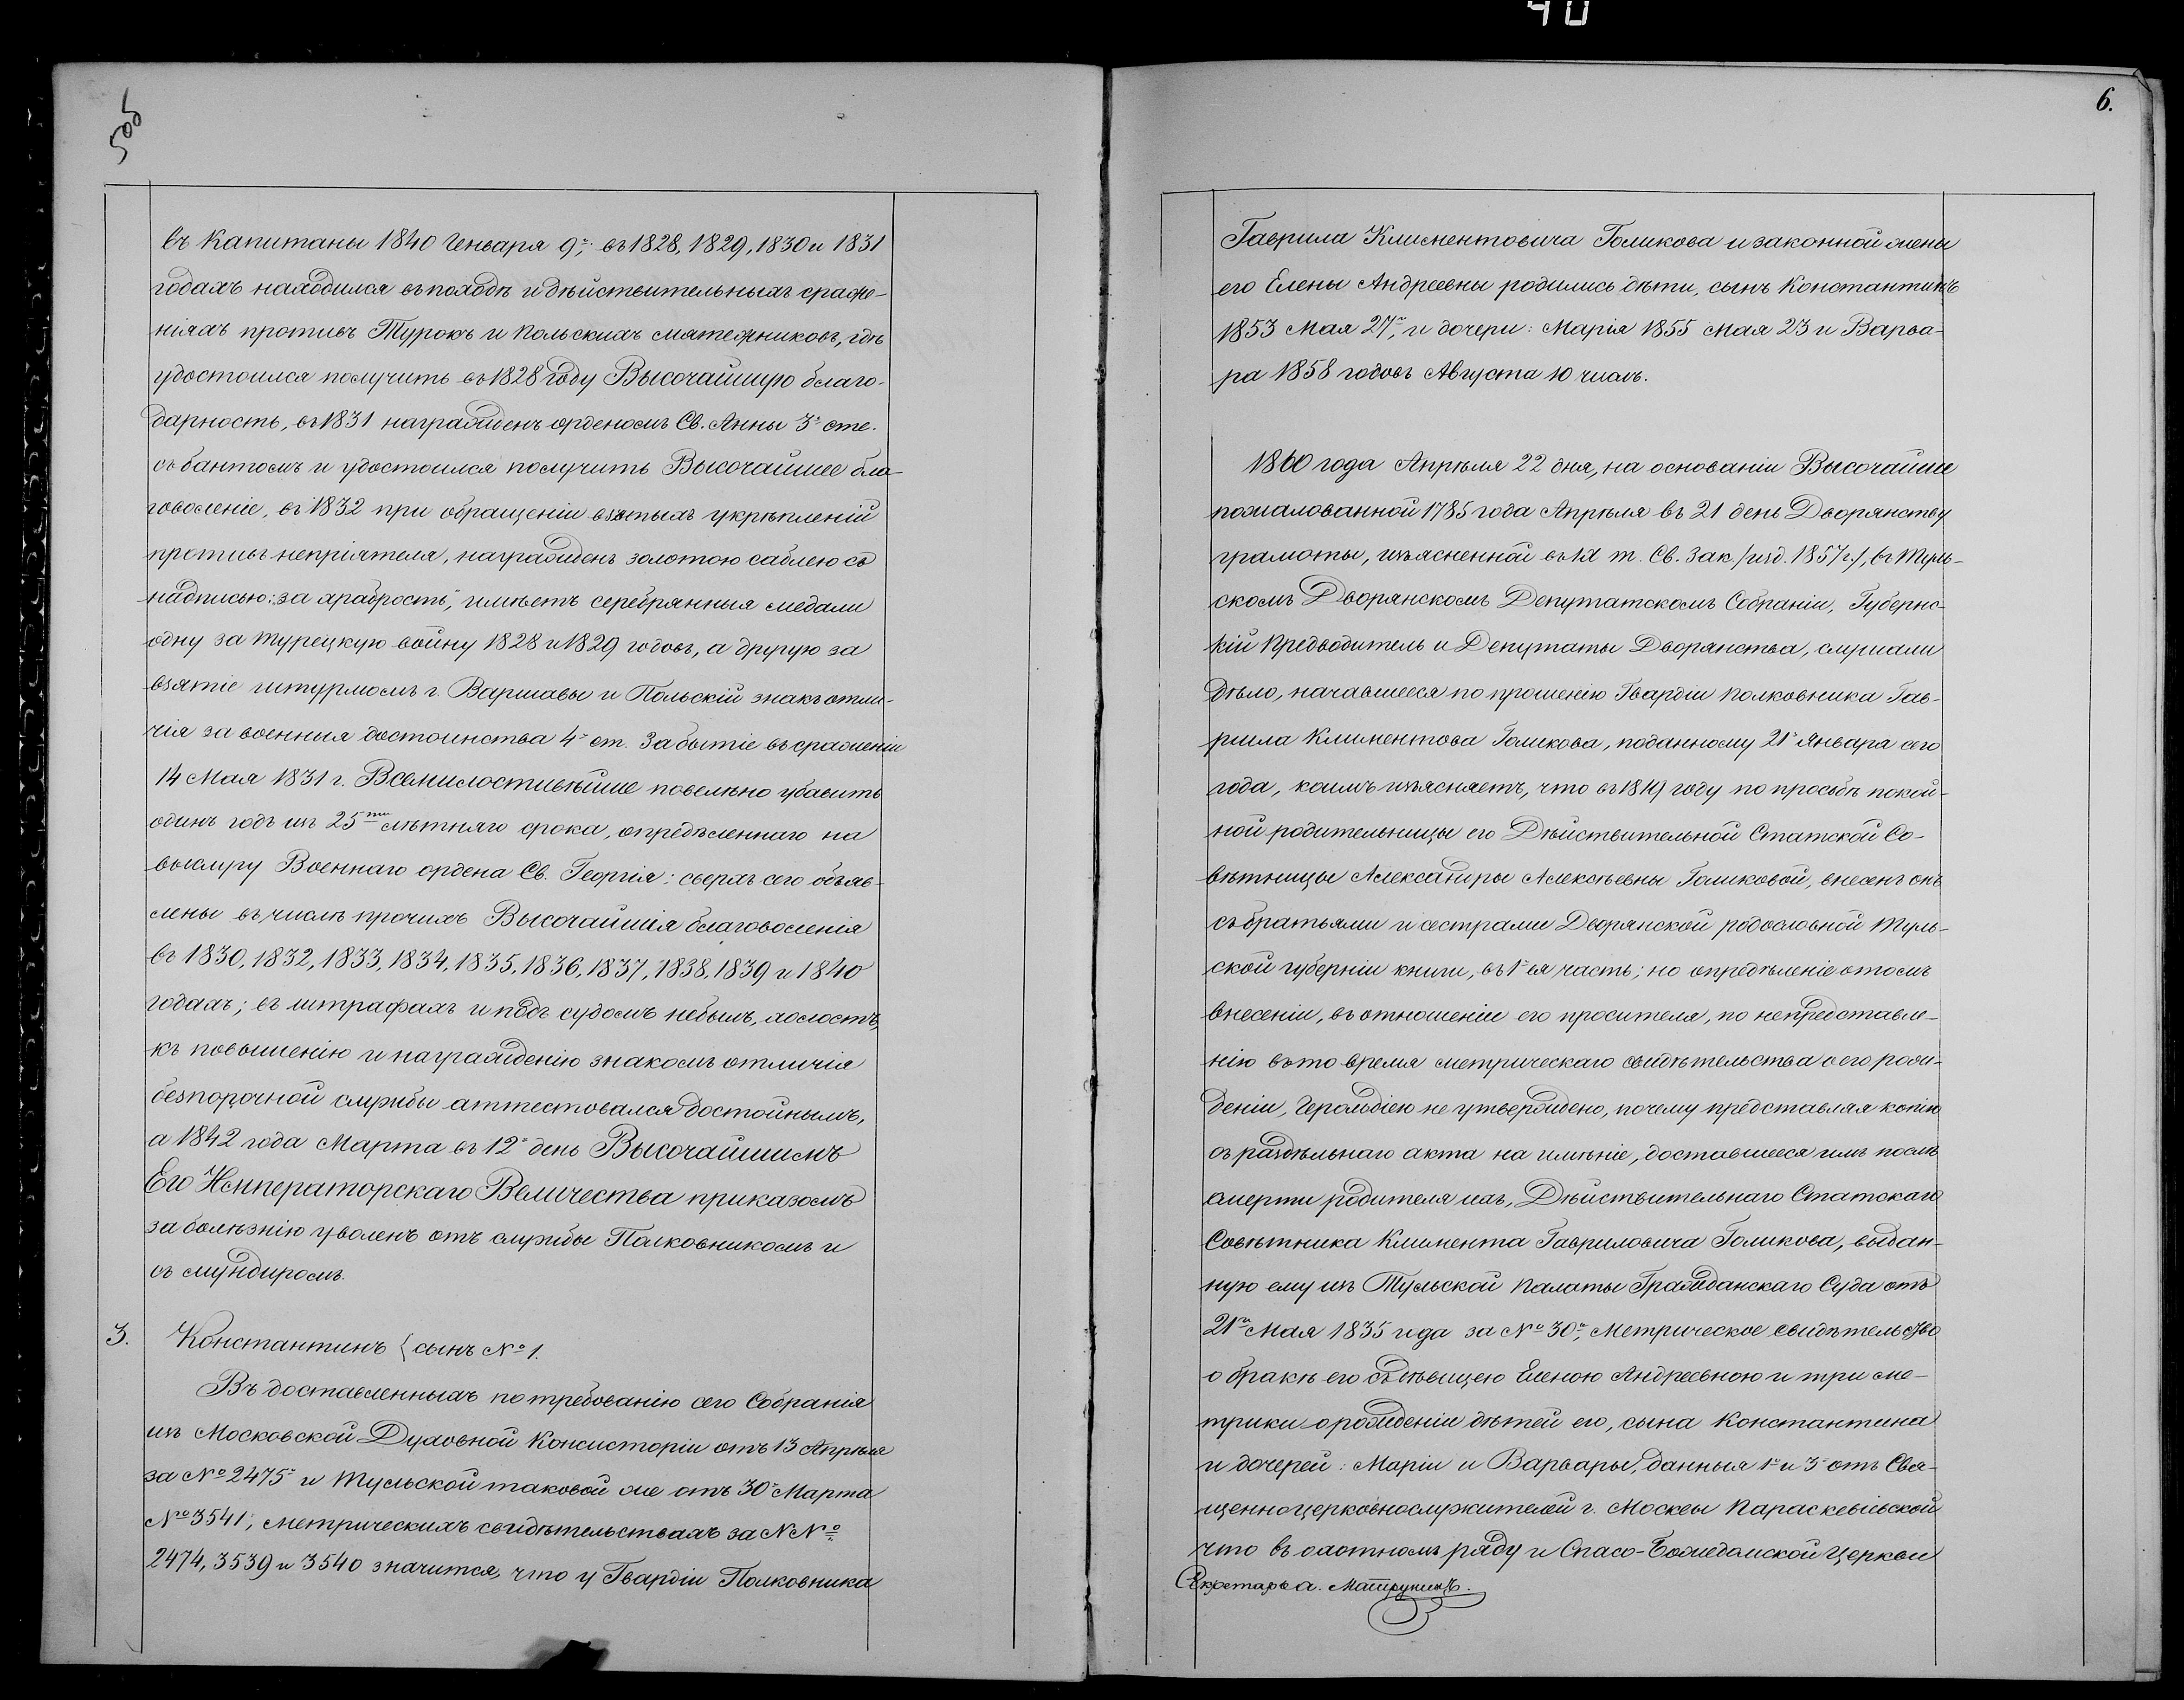 40
6.
въ Капитаны 1840 Генваря 9го; въ 1828, 1829, 1830 и 1831
годахъ находился въ походѣ и дѣйствительныхъ сраже-
ніяхъ противъ Турокъ и Польскихъ мятежниковъ, гдѣ
удостоился получить въ 1828 году Высочайшую благо-
дарность, въ 1831 награжденъ орденомъ Св. Анны 3й сте.
съ бантомъ и удостоился получить Высочайшее бла-
говоленіе, въ 1832 при обращеніи взятыхъ укрѣпленій
противъ непріятеля, награжденъ золотою саблею съ
надписью: „за храбрость", имѣетъ серебрянныя медали
одну за турецкую войну 1828 и 1829 годовъ, а другую за
взятіе штурмомъ г. Варшавы и Польскій знакъ отли-
чія за военныя достоинства 4й ст. За бытіе въ сраженіи
14 Мая 1831 г. Всемилостивѣйше повелѣно убавить
одинъ годъ изъ 25ти лѣтняго срока, опредѣленнаго на
выслугу Военнаго ордена Св. Георгія; сверхъ сего объяв-
лены въ числѣ прочихъ Высочайшія благоволенія
въ 1830, 1832, 1833, 1834, 1835, 1836, 1837, 1838, 1839 и 1840
годахъ; въ штрафахъ и подъ судомъ небылъ, холостъ,
къ повышенію и награжденію знакомъ отличія
безпорочной службы аттестовался достойнымъ,
а 1842 года Марта въ 12й день Высочайшимъ
Его Императорскаго Величества приказомъ
за болѣзнію уволенъ отъ службы Полковникомъ и
съ мундиромъ.
3. Константинъ { сынъ № 1.
Въ доставленныхъ по требованію сего Собранія
изъ Московской Духовной Консисторіи отъ 13 Апрѣля
за № 2475й и Тульской таковой же отъ 30го Марта
№ 3541, метрическихъ свидѣтельствахъ за №№
2474, 3539 и 3540 значится, что у Гвардіи Полковника
Гаврила Климентовича Голикова и законной жены
его Елены Андреевны родились дѣти, сынъ Константинъ
1853 Мая 27го, и дочери: Марія 1855 Мая 23 и Варва-
ра 1858 годовъ Августа 10 числъ.
1860 года Апрѣля 22 дня, на основаніи Высочайше
пожалованной 1785 года Апрѣля въ 21 день Дворянству
грамоты, изъясненной въ IX т. Св. Зак. /изд. 1857 г./, въ Туль-
скомъ Дворянскомъ Депутатскомъ Собраніи, Губернс-
кій Предводитель и Депутаты Дворянства, слушали
дѣло, начавшееся по прошенію Гвардіи Полковника Гав-
рила Климентова Голикова, поданному 21го Января сего
года, коимъ изъясняетъ, что въ 1819 году по просьбѣ покой-
ной родительницы его Дѣйствительной Статской Со-
вѣтницы Александры Алексѣевны Голиковой, внесенъ онъ
съ братьями и сестрами Дворянской родословной Туль-
ской губерніи книги, въ 1ю ея часть; но опредѣленіе отомъ
внесеніи, въ отношеніи его просителя, по непредставле-
нію въ то время метрическаго свидѣтельства о его рож-
деніи, Герольдіею не утверждено, почему представляя копію
съ раздѣльнаго акта на имѣніе, доставшееся имъ послѣ
смерти родителя ихъ, Дѣйствительнаго Статскаго
Совѣтника Климента Гавриловича Голикова, выдан-
ную ему изъ Тульской Палаты Гражданскаго Суда отъ
21го Мая 1835 года за № 30й, Метрическое свидѣтельство
о бракѣ его съ дѣвицею Еленою Андреевною и три ме-
трики о рожденіи дѣтей его, сына Константина
и дочерей: Маріи и Варвары, данныя 1я и 3я отъ Свя-
щенноцерковнослужителей г. Москвы Параскевіевской
что въ охотномъ ряду и Спасо-Божедомской Церкви
Секретарь А.